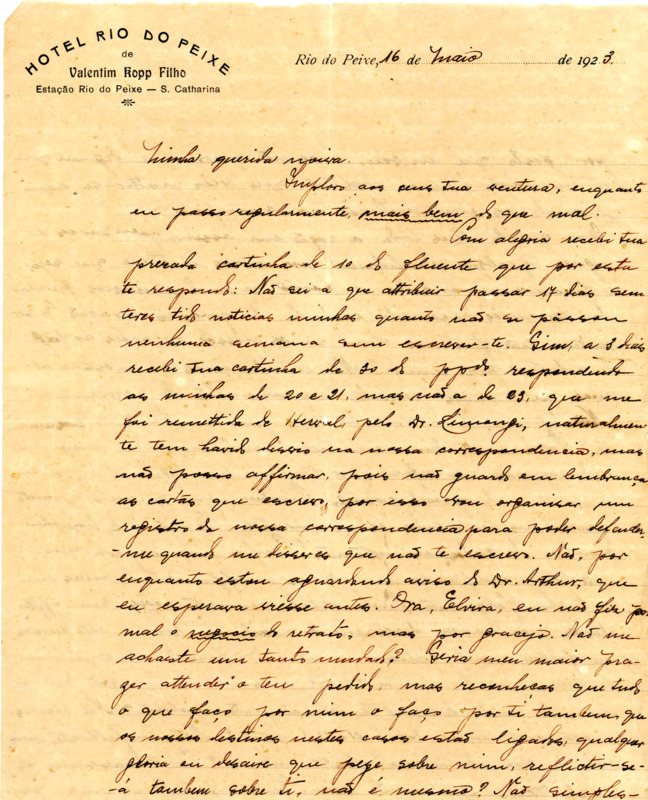 HOTEL RIO DO PEIXE
de
Valentim Kopp Filho
Estação Rio do Peixe — S. Catharina
Rio do Peixe, 16 de Maio de 1923
Minha querida noiva.
Imploro aos ceus tua ventura, enquanto
eu passo regularmente, mais bem do que mal.
Com alegria recebi tua
prezada cartinha de 10 do fluente que por esta
te respondo: Não sei a que attribuir passar 17 dias sem
teres tido noticias minhas quanto não se passou
nenhuma semana sem escrever-te. Sim, a 3 dias
recebi tua cartinha de 30 do ppdo respondendo
as minhas de 20 e 21, mas não a de 23, que me
foi remettida de Herval pelo Dr. Limongi, naturalmen-
te tem havido desvio na nossa correspondencia, mas
não posso affirmar, pois não guardo em lembrança
as cartas que escrevo, por isso vou organisar um
registro da nossa correspondencia para poder defender-
-me quando me disseres que não te escrevo. Não, por
enquanto estou aguardando aviso do Dr. Arthur, que
eu esperava viesse antes. Ora, Elvira, eu não fiz por
mal o negocio do retrato, mas por gracejo. Não me
achaste um tanto mudado? Seria meu maior pra-
zer attender o teu pedido, mas reconheças que tudo
o que faço por mim o faço por ti tambem, que
os nossos destinos nestes casos estão ligados, qualquer
gloria ou desaire que pese sobre mim, reflictir-se-
-á tambem sobre ti, não é mesmo? Não simples-